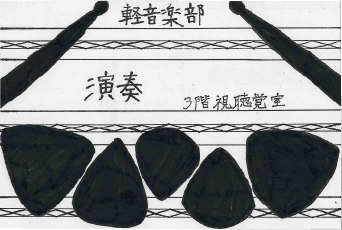 軽音楽部
演奏
3階視聴覚室